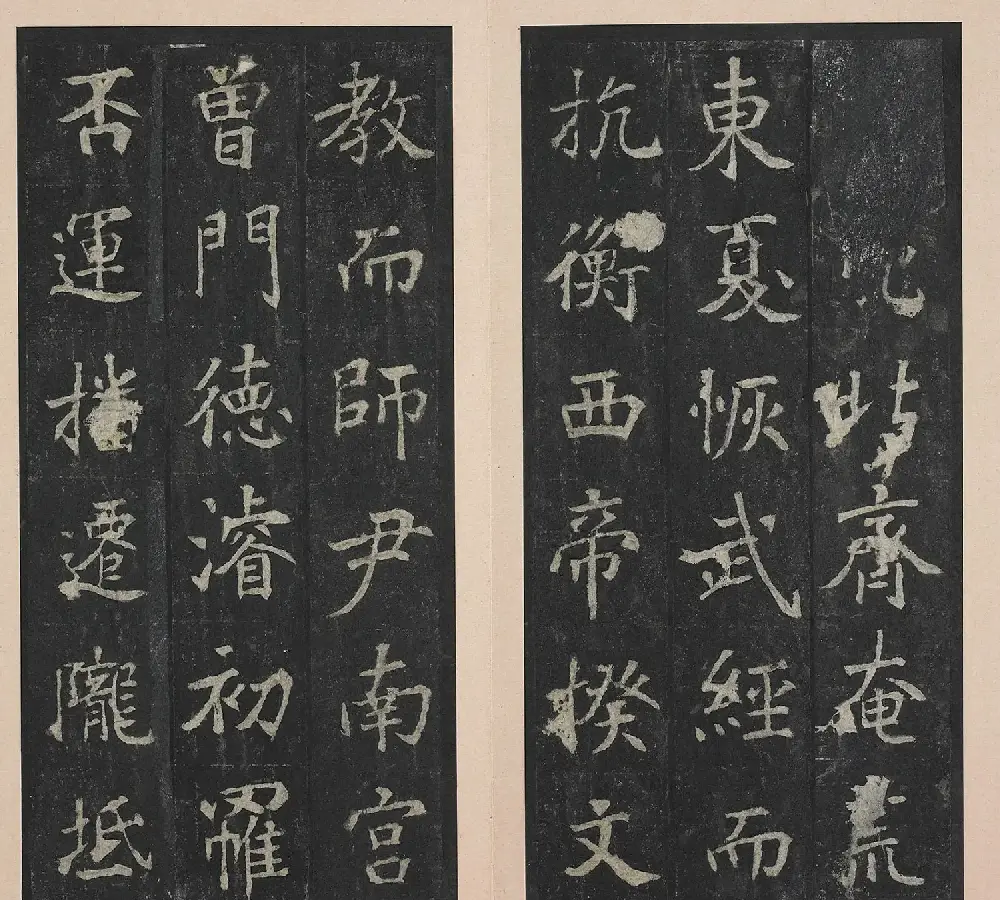 齊奄荒
東夏恢武經而
抗衡西帝揆文
教而師尹南宫
曾門德濬初罹
否運播遷隴抵